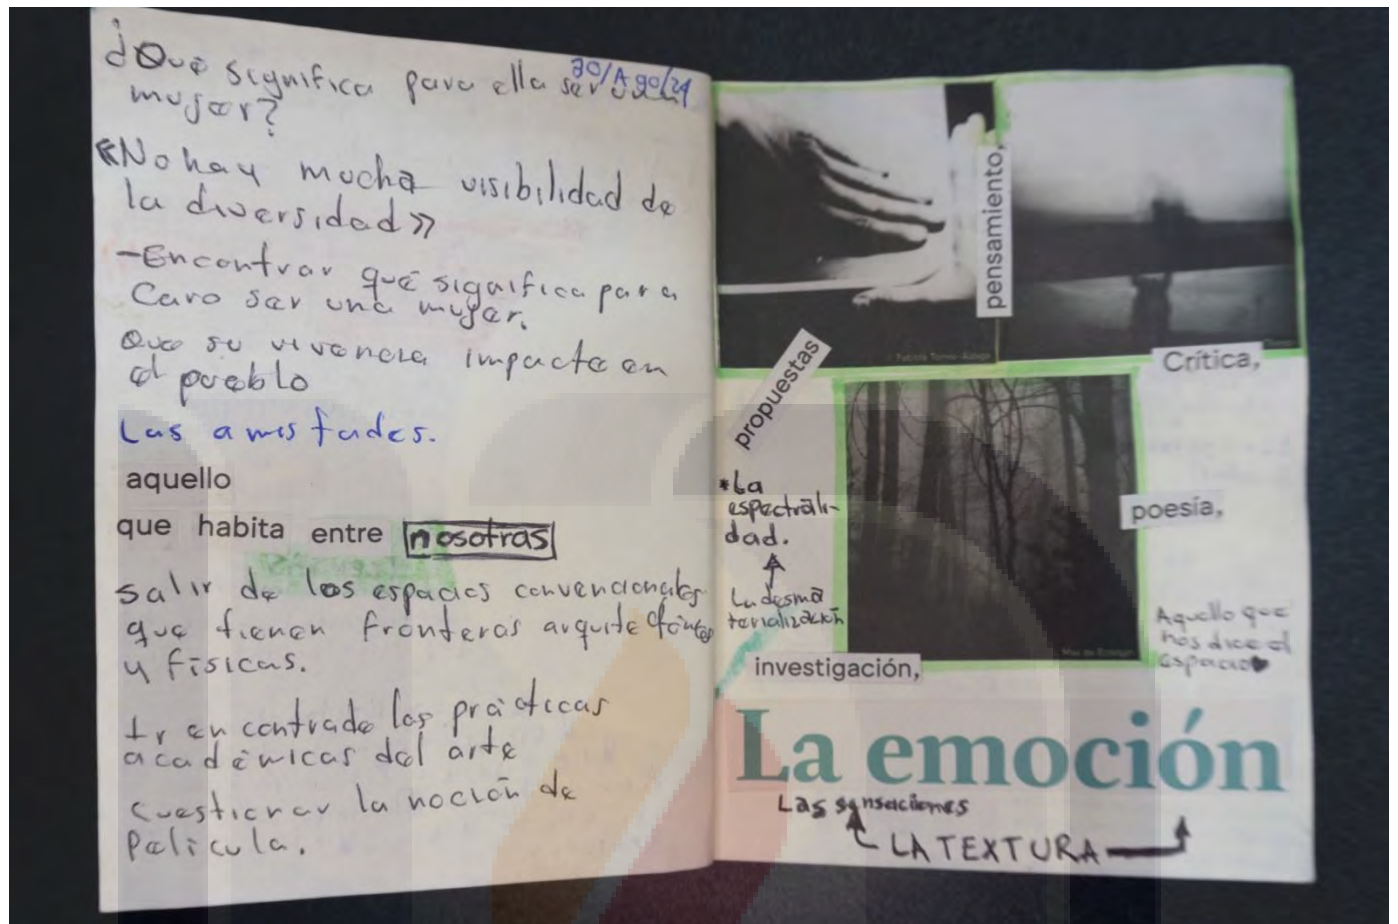 30/Ago/21
¿Qué significa para ella ser
mujer?
«No hay mucha visibilidad de
la diversidad»
-Encontrar qué significa para
Caro ser una mujer.
Que su vivencia impacte en
el pueblo
Las amistades.
aquello
que habita entre nosotras
salir de los espacios convencionales
que tienen fronteras
y físicas.
Ir en contra de las prácticas
académicas del arte
Cuestionar la noción de
Película.
pensamiento,
Crítica,
propuestas
*La
espectrali-
dad.
La desma
terialización
poesía,
Aquello que
nos dice el
espacio
investigación,
La emoción
Las sensaciones
LA TEXTURA